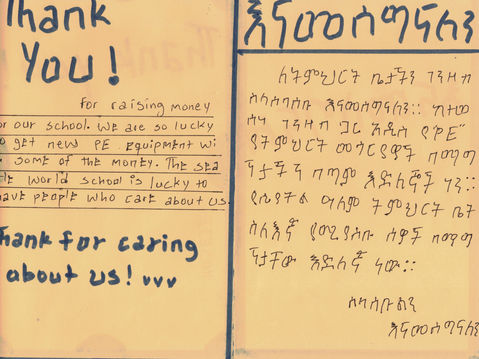 Thank
YOU!
for raising money
or our school. We are so lucky
o get new PE equipment wi
some of the money. The sea
tle world school is lucky to
have people who care about us.
Thank for caring
about us!
እናመሰግናለን
ለትምህርት ቤታችን ገንዘብ
ስላሰባሰቡ እናመሰግናለን። ከተወ
ሰነ ገንዘብ ጋር አዲስ የ"PE"
የትምህርት መሳርያዎች በማግ
ኘታችን በጣም እድለኞች ነን።
የሲያትል ዓለም ትምህርት ቤት
ስለእኛ የሚያስቡ ሰዎች በማግ
ኘታቸው እድለኛ ነው።
ስላሰቡልን
እናመሰግናለን